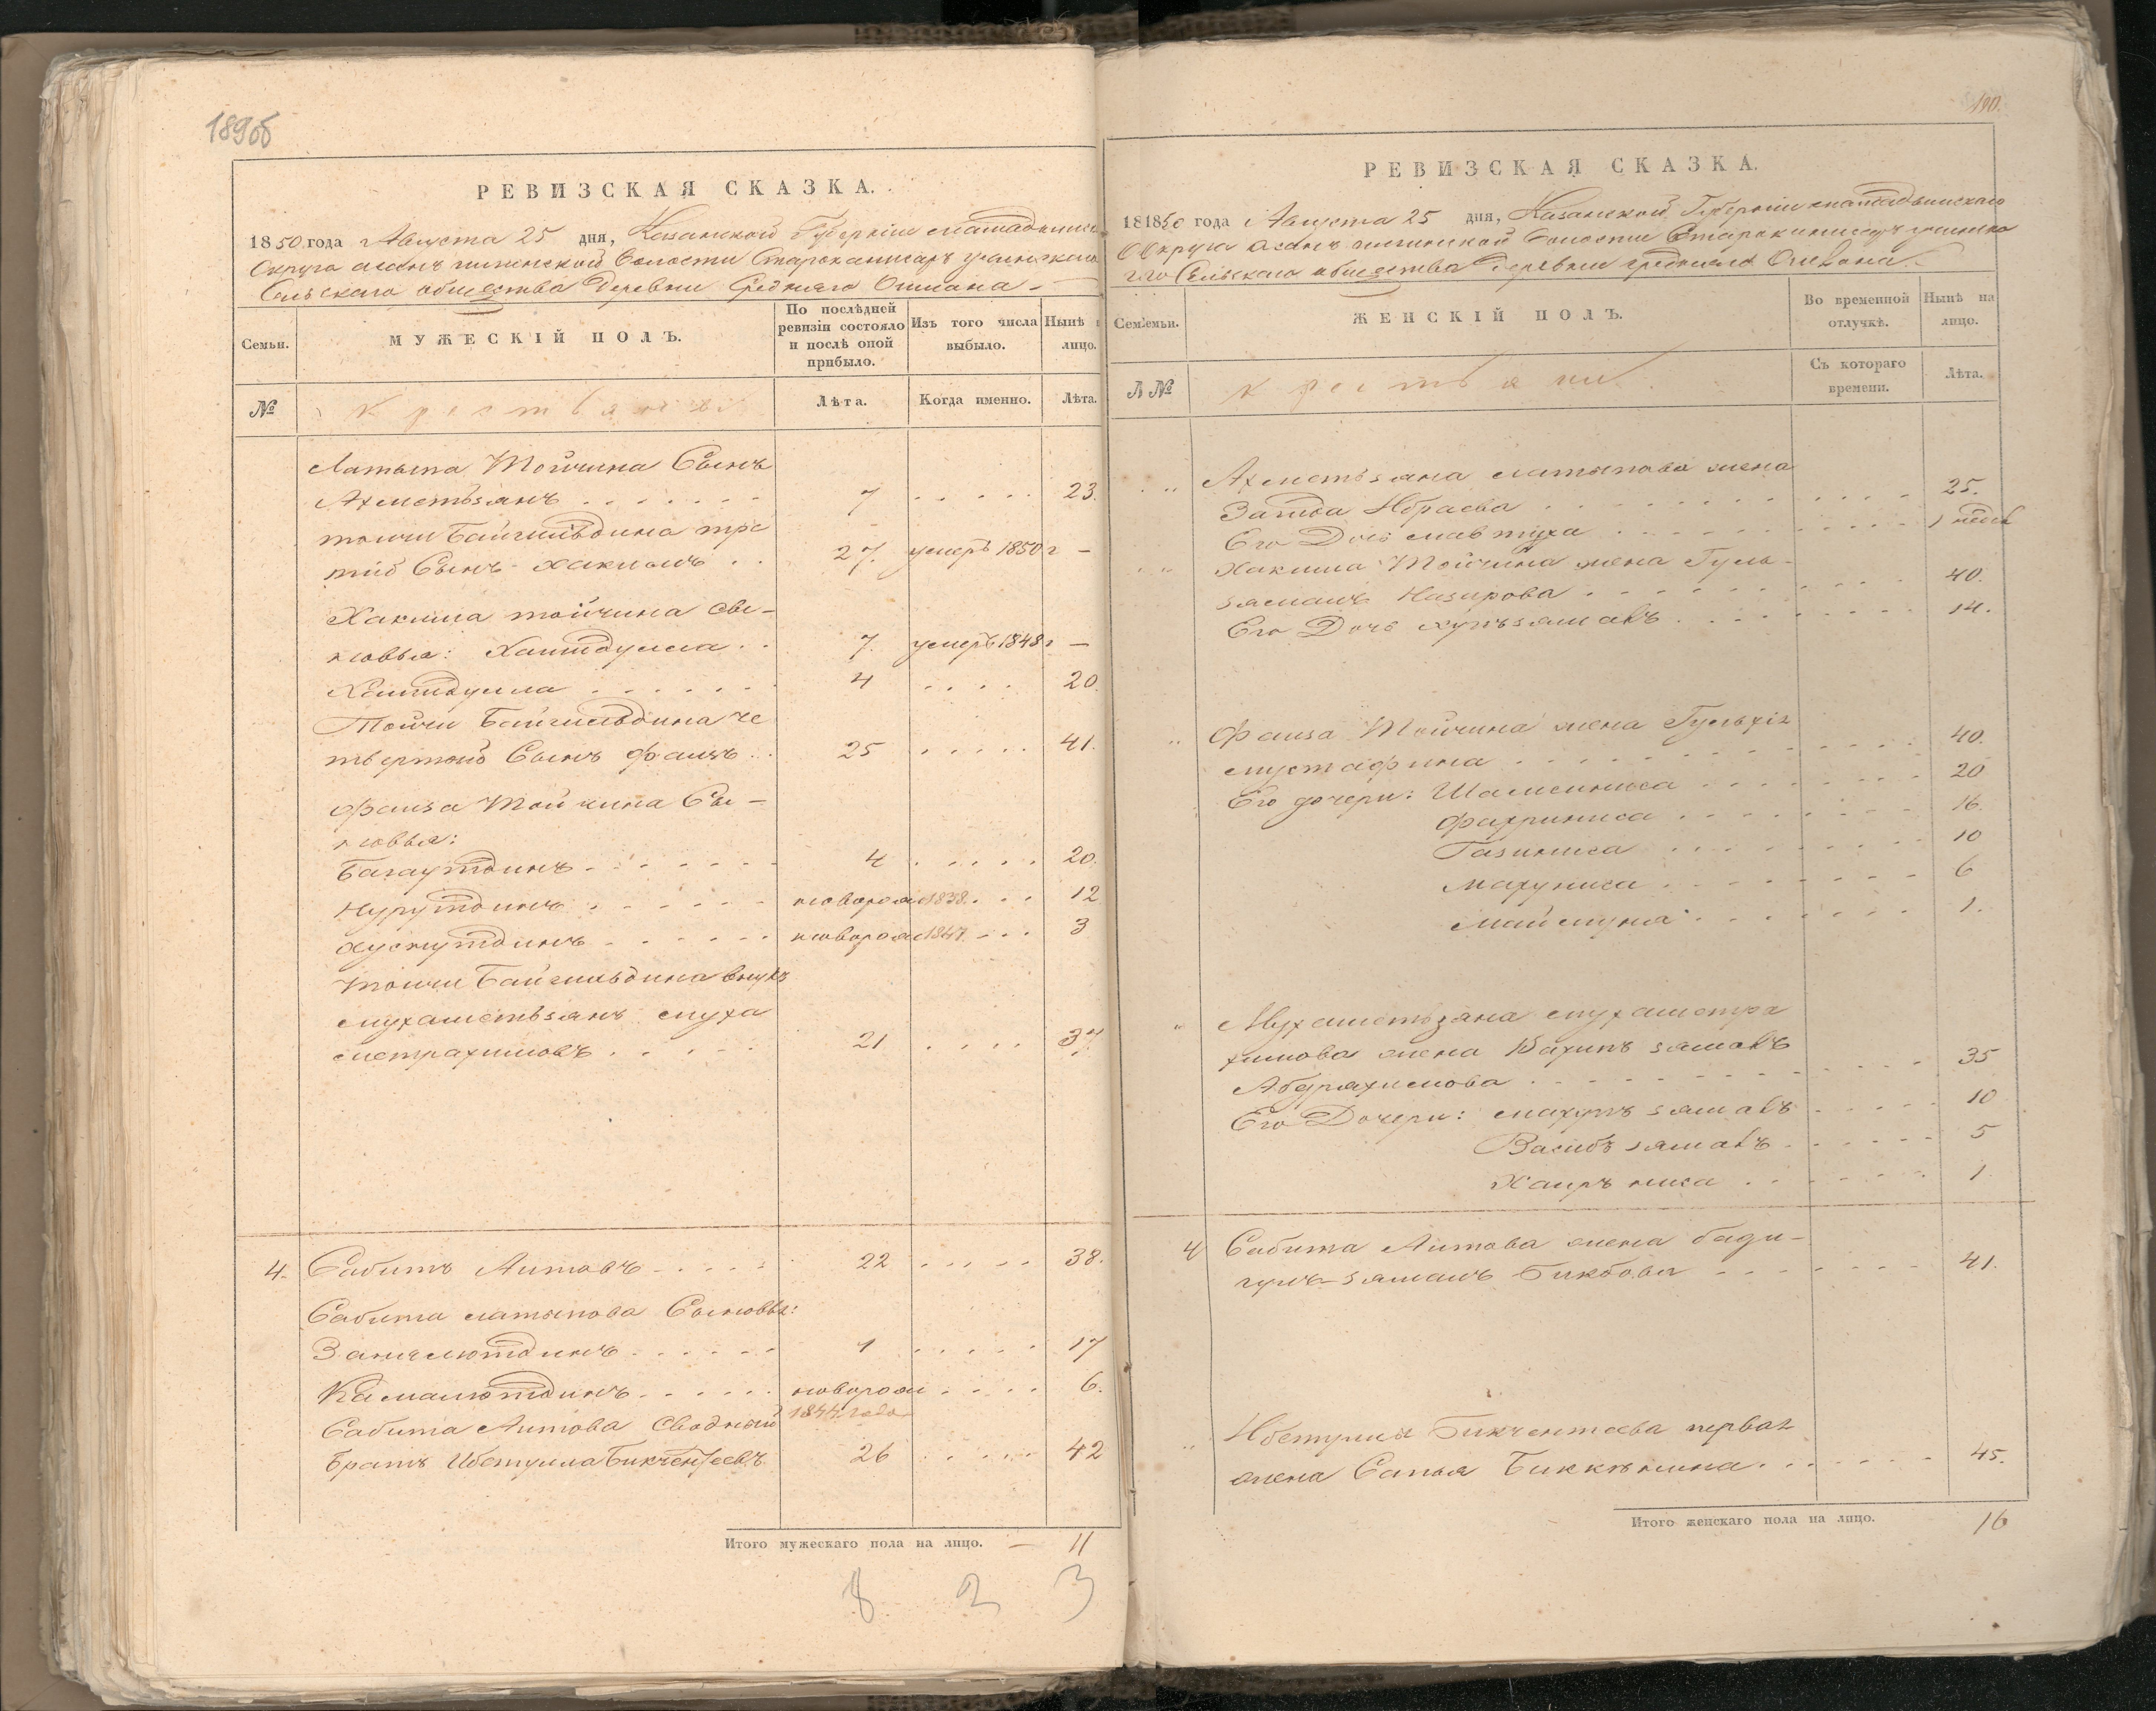 189об
РЕВИЗСКАЯ СКАЗКА.
1850 года Августа 25 дня, Казанской Губернiи мамадышска
Округа асанъ Волости
Сельскаго общества Деревни Средняго Ошмана
Семьи.
МУЖЕСКIЙ ПОЛЪ.
По послѣдней ревизiи состояло и послѣ оной прибыло.
Изъ того числа выбыло.
Нынѣ н лицо.
№
крестьяне
Лѣта.
Когда именно.
Лѣта.
Латыпа Тойчина Сынъ
Ахметьзянъ 7 23.
тойчи Байгильдина тре
тiй Сынъ Хакимъ 27. умеръ 1850 г –
Хакима тойчина сы–
новья: Хаитдулла 7. умеръ 1848 г –
4 20.
Тойчи Байгильдина че
твертой Сынъ Фаизъ 25 41.
Фаиза Тойчина Сы–
новья:
Багаутдинъ 4 20.
Нурутдинъ новорож 1838. 12
Хуснутдинъ новорож 1847. 3
Тойчи Байгильдина внукъ
мухаметьзянъ муха
метрахимовъ 21 37.
4. Сабитъ Аитовъ 22 38.
Сабита латыпова Сыновья:
1 17
Камалютдинъ новорож 6.
1844 года
Сабита Аитова Сводный
Братъ Ибетулла Бикчентеевъ 26 42
Итого мужескаго пола на лицо. – 11
8 2 3
190.
РЕВИЗСКАЯ СКАЗКА.
181850 года Августа 25 дня, Казанской Губернiи мамадышскаго
Округа асанъ Волости
Сельскаго общества Деревни средняго Ошмана
Семьи.
ЖЕНСКIЙ ПОЛЪ.
Во временной отлучкѣ.
Нынѣ на лицо.
№
крестьяни
Съ котораго времени.
Лѣта.
Ахметьзяна латыпова жена
Заитда Ибраева 25.
Его Дочь мавтуха 1 недѣл
Хакима Тойчина жена Гуль–
зямалъ Назирова 40.
Его Дочь 14.
Фаиза Тойчина жена
мустафина 40.
Его дочери: Шамсиниса 20
Фахриниса 16.
Газиниса 10
Махуниса 6
Маймуна 1.
Мухаметьзяна мухаметра
химова жена
Абдряхимова 35
Его Дочери: 10
5
Хаиръ ниса 1
4 Сабита Аитова жена бади–
гулъ–зямалъ Бикбова 41.
Ибетуллы Бикчентеева первая
жена Сапья Биккенина 45.
Итого женскаго пола на лицо. 16